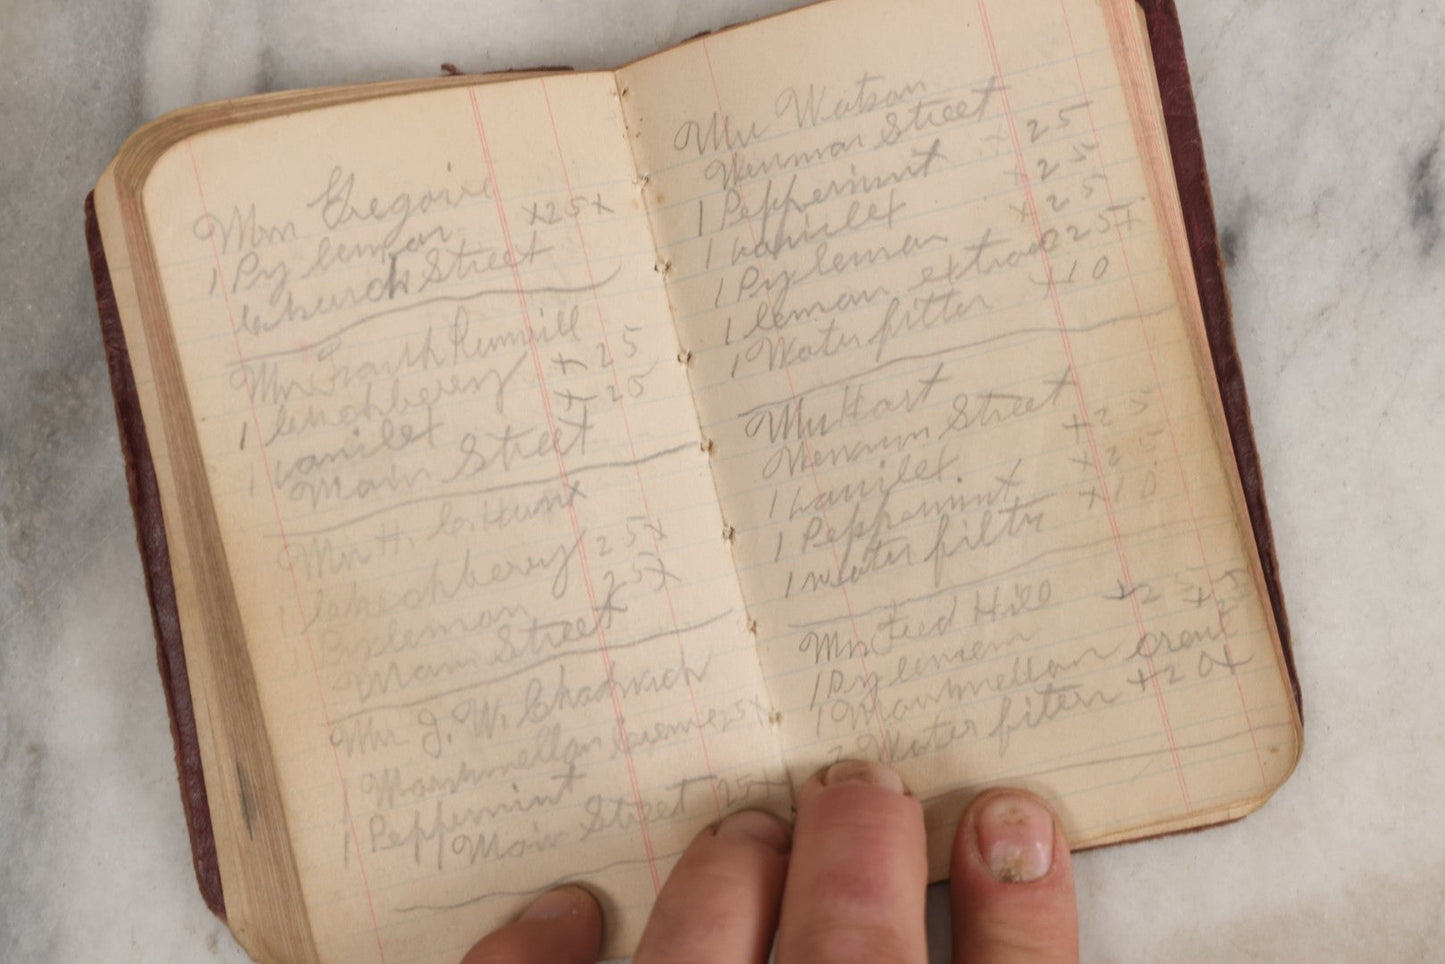 Mrs Gregoire
1 Py lemon x25x
Church Street
Mrs Frank
1 x 25
1 vanilet x 25
Main Street
Mrs H. C. Hunt
1 25x
1 Py lemon 25x
Main Street
Mrs J. W. Chadwick
1 Marshmellan Creme 25x
1 Peppermint 25x
Main Street
Mrs Watson
Street
1 Peppermint x 25
1 vanilet x 25
1 Py lemon x 25
1 lemon extract 25x
1 Water filter x10
Mrs Hart
Street
1 vanilet x 25
1 Peppermint x 25
1 water filtr x10
Mrs Fred Hill
1 Py lemon x25
1 Marshmellan creme x25
2 Water filters x20x